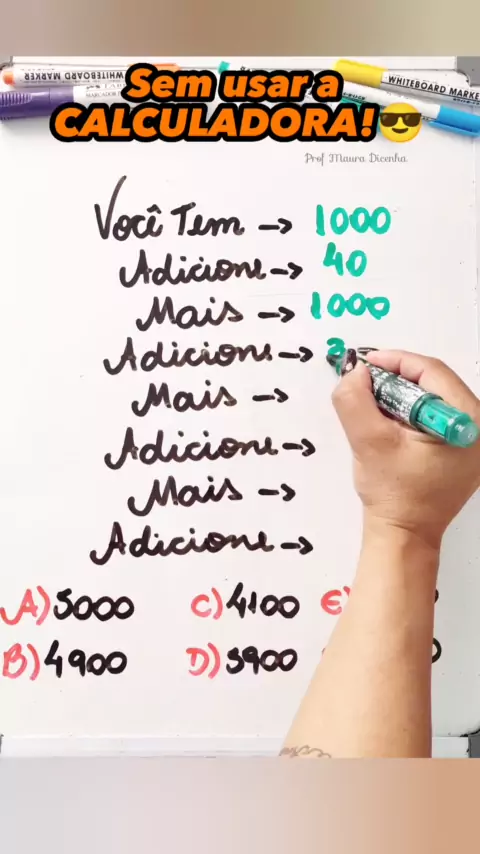 WHITEBOARD MARKER
BOARD MARKER
WHITEBOARD MARKE
Sem usar a
CALCULADORA!😎
Prof Maura Dicenha.
Você Tem → 1000
Adicione → 40
Mais → 1000
Adicione →
Mais →
Adicione →
Mais →
Adicione →
A) 5000 C) 4100 E)
B) 4900 D) 5900